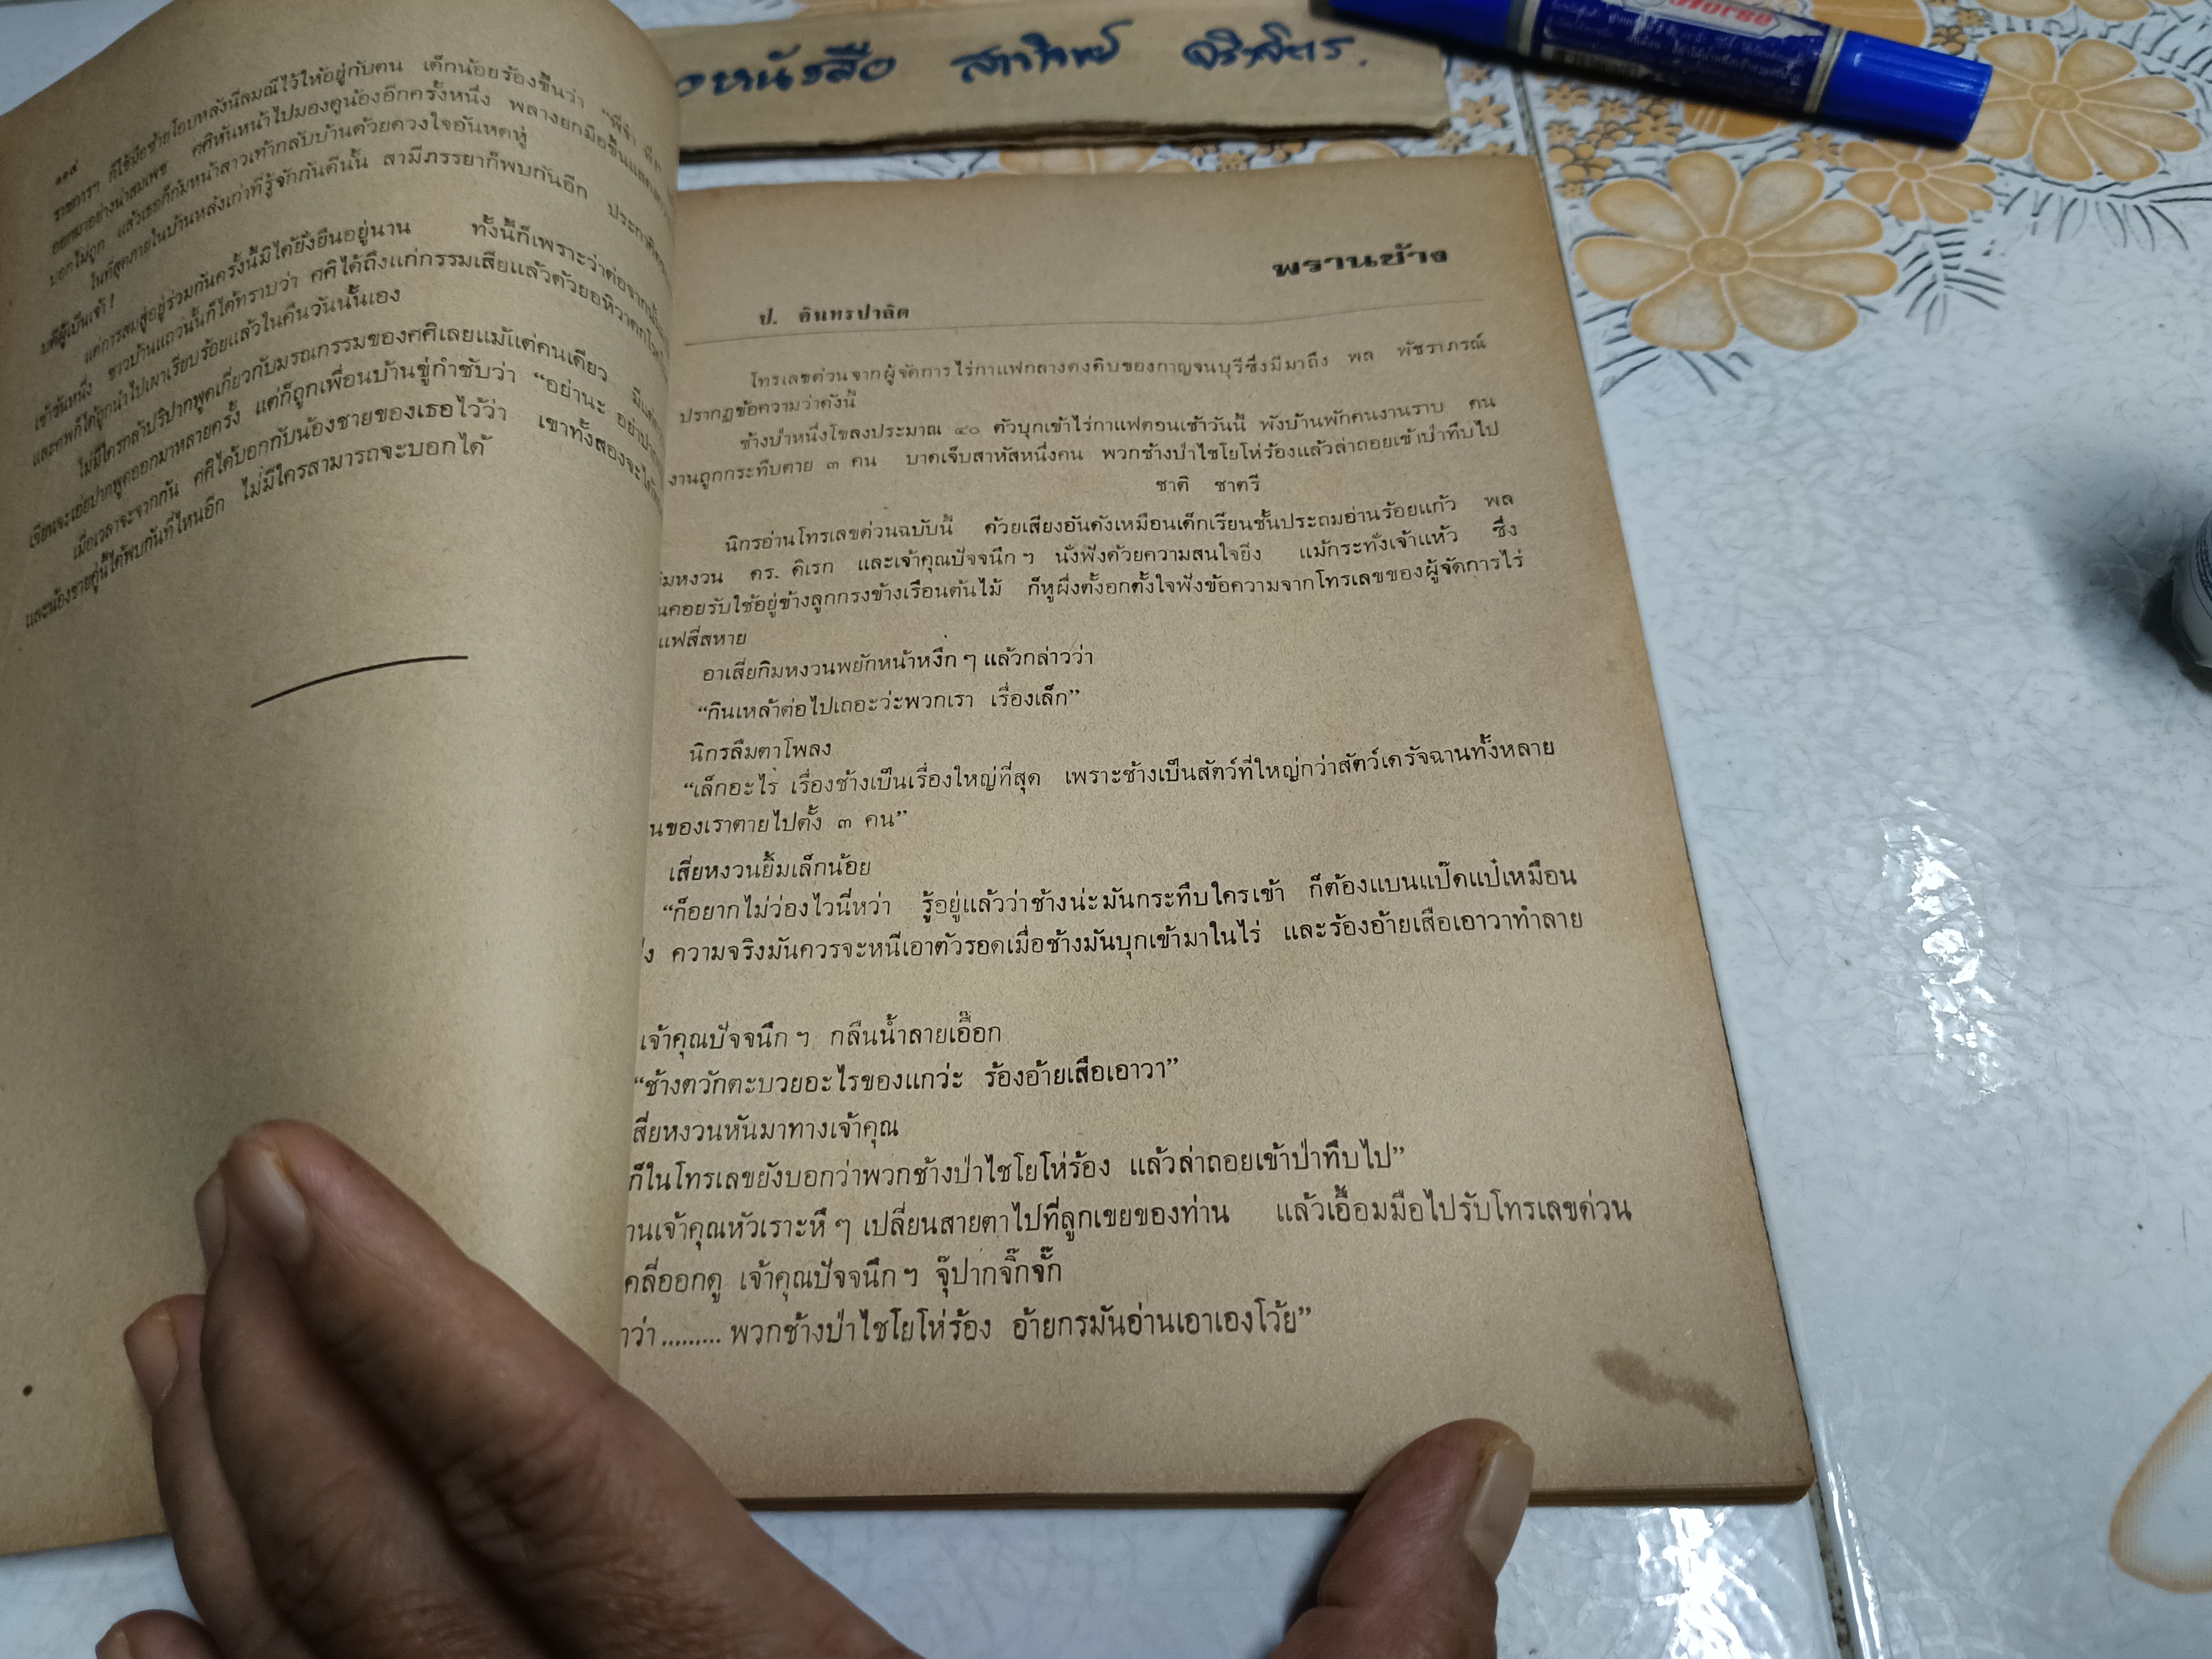 หนังสือ
Horse
๑๑๔
ราชการฯ ก็ใช้มือซ้ายโอบหลังนีลมณีไว้ให้อยู่กับตน เด็กน้อยร้องขึ้นว่า “พี่จ๋า
ออกมาอย่างน่าสมเพช ศศิหันหน้าไปมองดูน้องอีกครั้งหนึ่ง พลางยกมือขึ้น
บอกไม่ถูก แล้วเธอก็ก้มหน้าสาวเท้ากลับบ้านด้วยดวงใจอันหดหู่
ในที่สุดภายในบ้านหลังเก่าที่รู้จักกันดีนั้น สามีภรรยาก็พบกันอีก
บดีผู้เป็นเจ้า !
แต่การสมสู่อยู่ร่วมกันครั้งนี้มิได้ยั่งยืนอยู่นาน ทั้งนี้ก็เพราะว่าต่อจากนั้น
เช้าวันหนึ่ง ชาวบ้านแถวนั้นก็ได้ทราบว่า ศศิได้ถึงแก่กรรมเสียแล้วด้วยอหิวาตกโรค
และศพก็ได้ถูกนำไปเผาเรียบร้อยแล้วในคืนวันนั้นเอง
ไม่มีใครกล้าปริปากพูดเกี่ยวกับมรณกรรมของศศิเลยแม้แต่คนเดียว มีแต่
เจียนจะเอ่ยปากพูดออกมาหลายครั้ง แต่ก็ถูกเพื่อนบ้านขู่กำชับว่า “อย่านะ
เมื่อเวลาจะจากกัน ศศิได้บอกกับน้องชายของเธอไว้ว่า เขาทั้งสองจะได้
และน้องชายคู่นี้ได้พบกันที่ไหนอีก ไม่มีใครสามารถจะบอกได้
พรานช้าง
ป. อินทรปาลิต
โทรเลขด่วนจากผู้จัดการไร่กาแฟกลางดงดิบของกาญจนบุรีซึ่งมีมาถึง พล พัชราภรณ์
ปรากฏข้อความว่าดังนี้
ช้างป่าหนึ่งโขลงประมาณ ๔๐ ตัวบุกเข้าไร่กาแฟตอนเช้าวันนี้ พังบ้านพักคนงานราบ คน
งานถูกกระทืบตาย ๓ คน บาดเจ็บสาหัสหนึ่งคน พวกช้างป่าไชโยโห่ร้องแล้วล่าถอยเข้าป่าทึบไป
ชาติ ชาตรี
นิกรอ่านโทรเลขด่วนฉบับนี้ ด้วยเสียงอันดังเหมือนเด็กเรียนชั้นประถมอ่านร้อยแก้ว พล
ิมหงวน ดร. ดิเรก และเจ้าคุณปัจจนึก ฯ นั่งฟังด้วยความสนใจยิ่ง แม้กระทั่งเจ้าแห้ว ซึ่ง
นคอยรับใช้อยู่ข้างลูกกรงข้างเรือนต้นไม้ ก็หูผึ่งตั้งอกตั้งใจฟังข้อความจากโทรเลขของผู้จัดการไร่
แฟสี่สหาย
อาเสี่ยกิมหงวนพยักหน้าหงึก ๆ แล้วกล่าวว่า
“กินเหล้าต่อไปเถอะว่ะพวกเรา เรื่องเล็ก”
นิกรลืมตาโพลง
“เล็กอะไร เรื่องช้างเป็นเรื่องใหญ่ที่สุด เพราะช้างเป็นสัตว์ที่ใหญ่กว่าสัตว์เดรัจฉานทั้งหลาย
นของเราตายไปตั้ง ๓ คน”
เสี่ยหงวนยิ้มเล็กน้อย
“ก็อยากไม่ว่องไวนี่หว่า รู้อยู่แล้วว่าช้างน่ะมันกระทืบใครเข้า ก็ต้องแบนแป๊ดแป๋เหมือน
ง ความจริงมันควรจะหนีเอาตัวรอดเมื่อช้างมันบุกเข้ามาในไร่ และร้องอ้ายเสือเอาวาทำลาย
เจ้าคุณปัจจนึก ฯ กลืนน้ำลายเอื๊อก
“ช้างตวักตะบวยอะไรของแกว่ะ ร้องอ้ายเสือเอาวา”
สี่ยหงวนหันมาทางเจ้าคุณ
ก็ในโทรเลขยังบอกว่าพวกช้างป่าไชโยโห่ร้อง แล้วล่าถอยเข้าป่าทึบไป”
านเจ้าคุณหัวเราะหึ ๆ เปลี่ยนสายตาไปที่ลูกเขยของท่าน แล้วเอื้อมมือไปรับโทรเลขด่วน
คลี่ออกดู เจ้าคุณปัจจนึก ฯ จุ๊ปากจิ๊กจั๊ก
าว่า ......... พวกช้างป่าไชโยโห่ร้อง อ้ายกรมันอ่านเอาเองโว้ย”